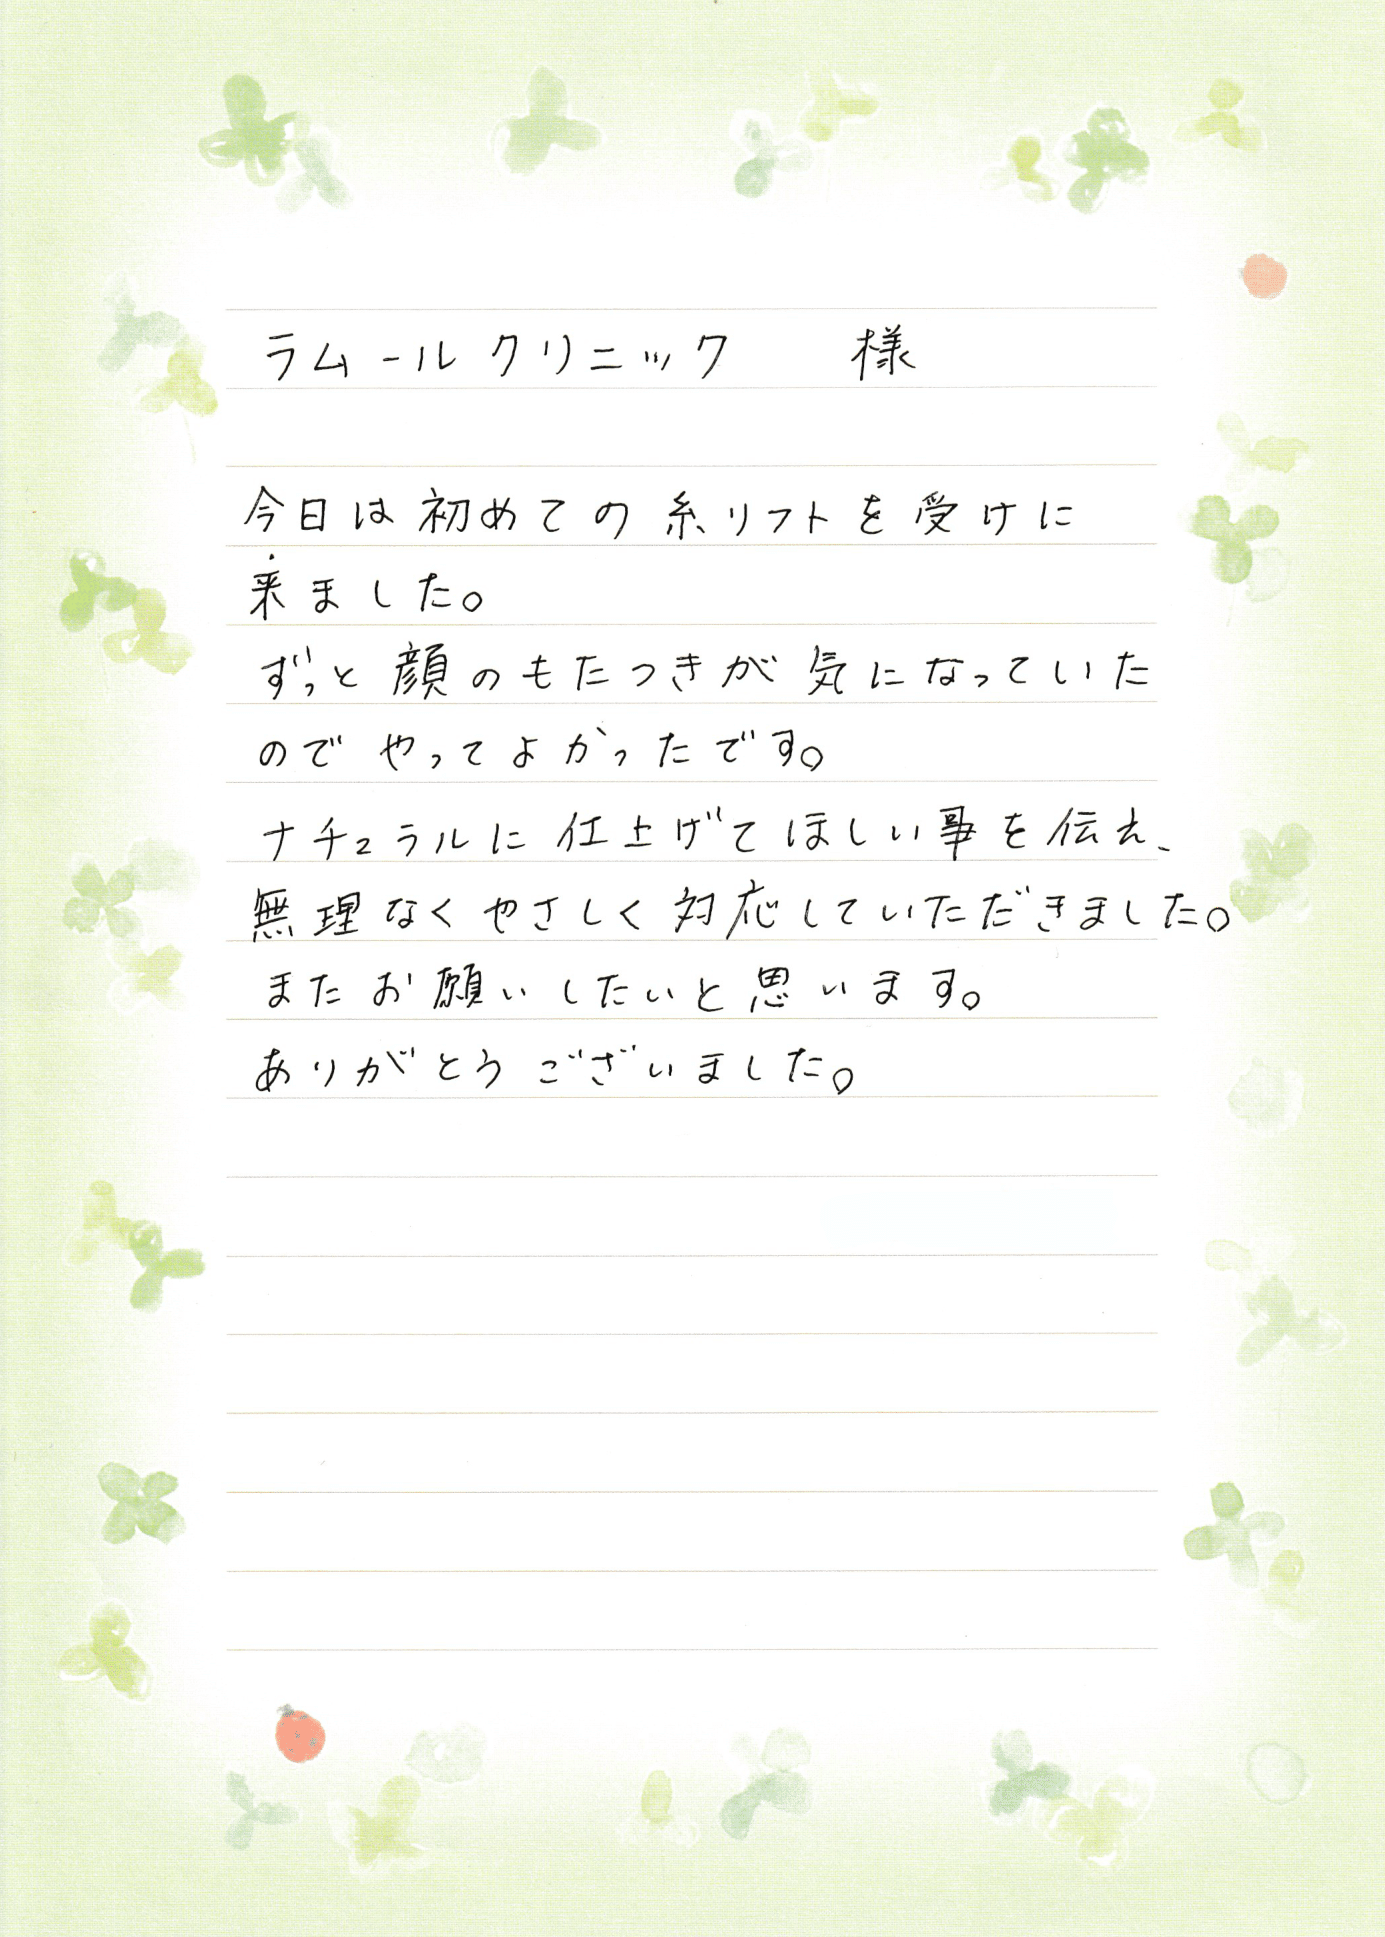 ラムールクリニック　様
今日は初めての糸リフトを受けに
来ました。
ずっと顔のもたつきが気になっていた
のでやってよかったです。
ナチュラルに仕上げてほしい事を伝え、
無理なくやさしく対応していただきました。
またお願いしたいと思います。
ありがとうございました。